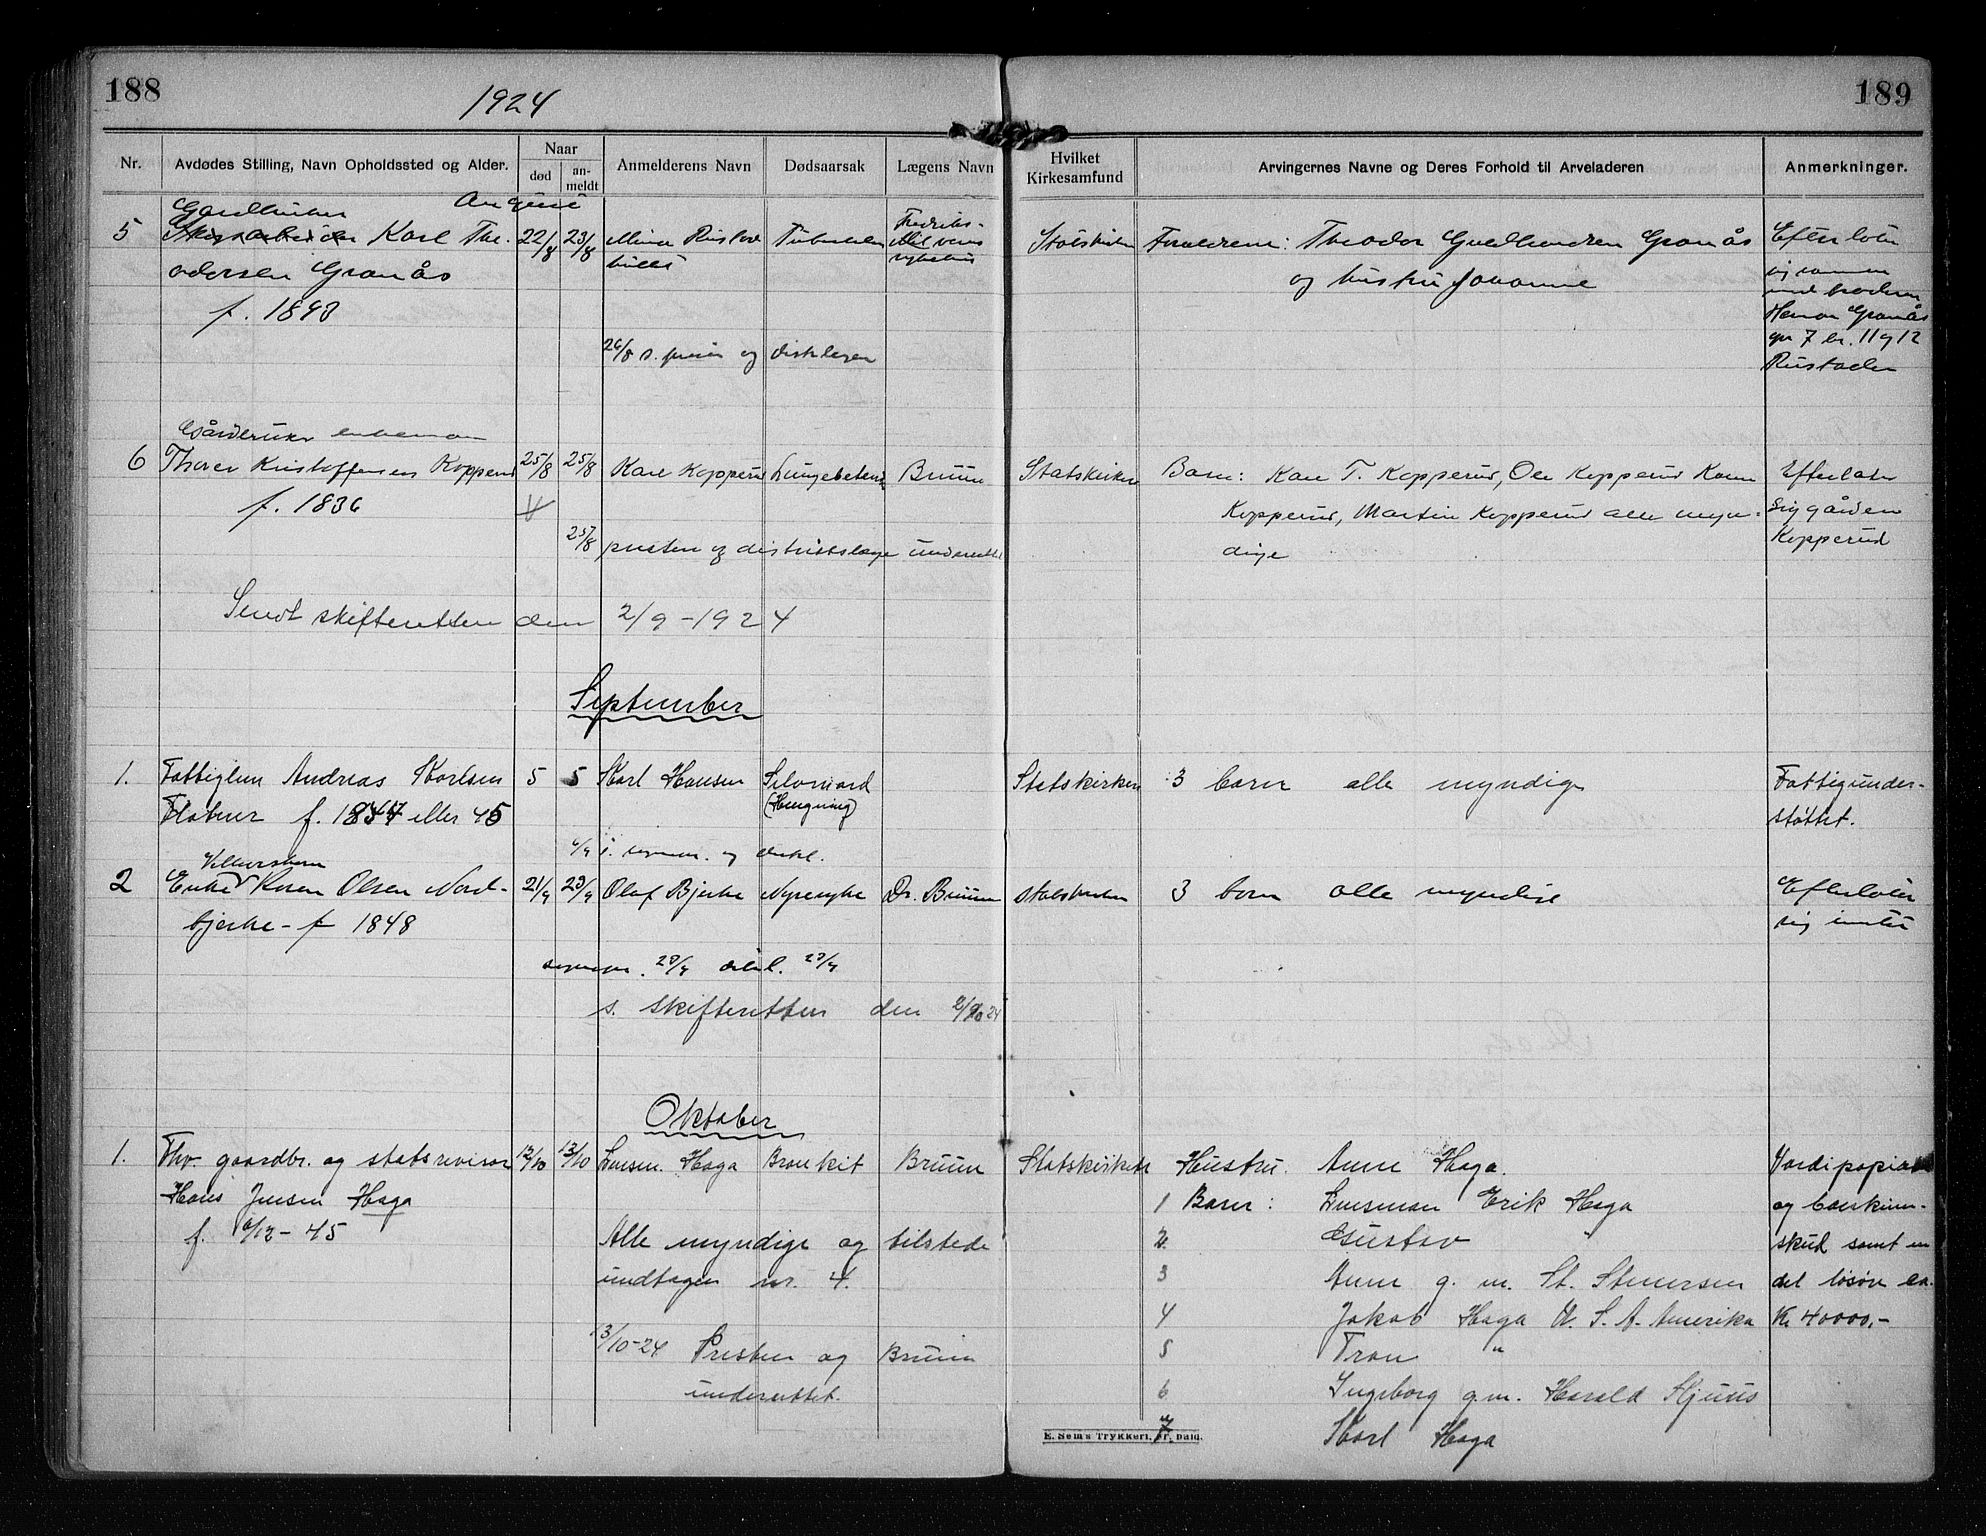 188
1924
189
Nr.
Avdødes Stilling, Navn Opholdssted og Alder.
Naar
død
an-
meldt
Anmelderens Navn
Dødsaarsak
Lægens Navn
Hvilket
Kirkesamfund
Arvingernes Navne og Deres Forhold til Arveladeren
Anmerkninger.
August
Gardbruker
5 Karl The- 22/8 23/8 Mina Rustad Tuberkulose Fredriks- Statskirken Forældrene: Theodor Gulbrandsen Granås Efterlater
odersen Granås og hustru Johanne sig sammen
f. 1893 med broderen
Granås
26/8 s. og distr.lægen gr 7 br. 11 og 12
Rustaden
Gårdbruker enkeman
6 Thorer Kristoffersen Kopperud 25/8 25/8 Karl Kopperud Lungebetend Bruun Statskirken Barn: Karl T. Kopperud, Ole Kopperud Karen Efterlater
f. 1836 Kopperud, Martin Kopperud alle myn- sig gården
25/8 presten og distriktslæge underrettet dige Kopperud
Sendt skifteretten den 2/9-1924
September
1. Fattiglem Andreas Karlsen 5 5 Karl Hansen Selvmord Statskirken 3 barn alle myndige Fattigunder-
Flatner f. 1844 eller 45 (Hengning) støttet.
6/9 s. sognepr. og distrl.
2 Enke Karen Olsen Nord- 21/9 23/9 Olaf Bjerke Nyresyke Dr. Bruun Statskirken 3 barn alle myndige Efterlater
bjerke - f 1848 sig intet
sognepr. 23/9 distrl. 23/9
s. skifteretten den 2/10 24
Oktober
1. Fhv. gaardbr. og statsrevisor 12/10 13/10 Lensm. Haga Bronkit Bruun Statskirken Hustru Anne Haga. Verdipapirer
Hans Jensen Haga 1 Barn: Lensman Erik Haga og boerkinn-
f. 6/12-45 2. Gustav " skud samt en
Alle myndige og tilstede 3 Anne g. m. St. Stenersen del løsøre ca.
undtagen nr. 4. 4 Jakob Haga U. S. A. Amerika Kr 40000,-
13/10-24 Presten og Bruun 5 Tron "
underrettet. 6 Ingeborg g.m. Harald Hjuus
7 Karl Haga
E. Sem's Trykkeri, Fr.hald.